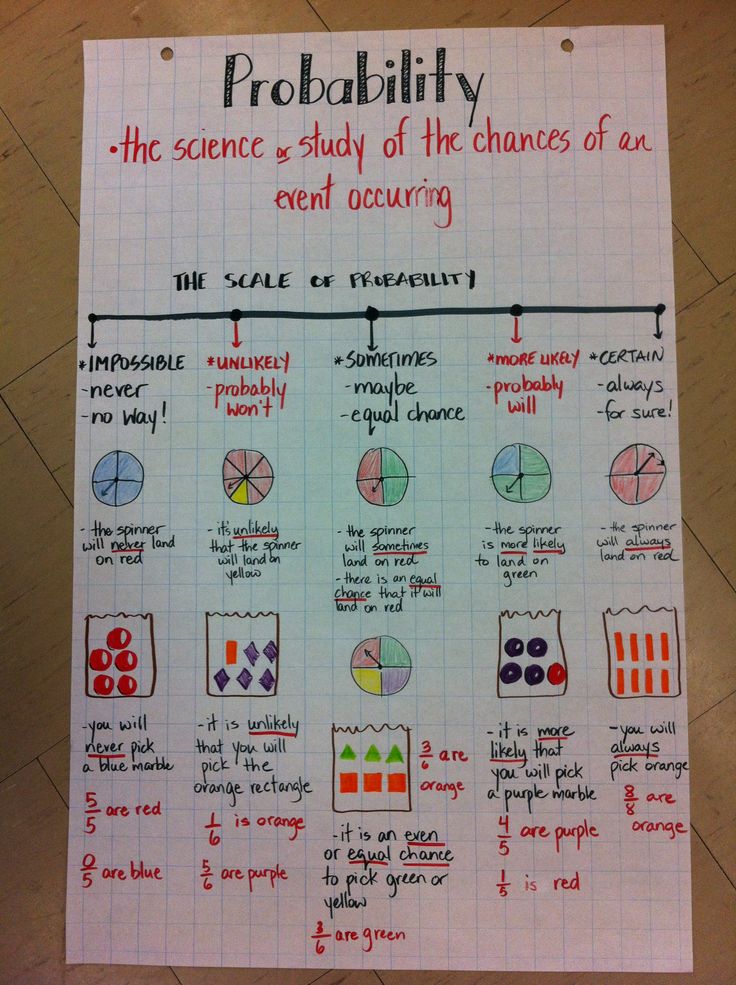 Probability
•the science or study of the chances of an
event occurring
THE SCALE OF PROBABILITY
*IMPOSSIBLE
-never
-no way!
*UNLIKELY
-probably
won't
*SOMETIMES
-maybe
-equal chance
*MORE LIKELY
-probably
will
*CERTAIN
-always
-for sure!
-the spinner
will never land
on red
-it's unlikely
that the spinner
will land on
yellow
-the spinner
will sometimes
land on red
-there is an equal
chance that it will
land on red
-the spinner
is more likely
to land on
green
-the spinner
will always
land on red
-you will
never pick
a blue marble
5/5 are red
0/5 are blue
-it is unlikely
that you will
pick the
orange rectangle
1/6 is orange
5/6 are purple
3/6 are
orange
-it is an even
or equal chance
to pick green or
yellow
3/6 are green
-it is more
likely that
you will pick
a purple marble
4/5 are purple
1/5 is red
-you will
always
pick orange
8/8 are
orange